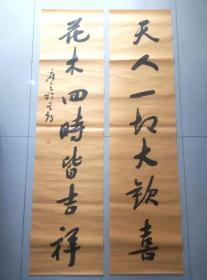 天人一切大歡喜
花木四時皆吉祥